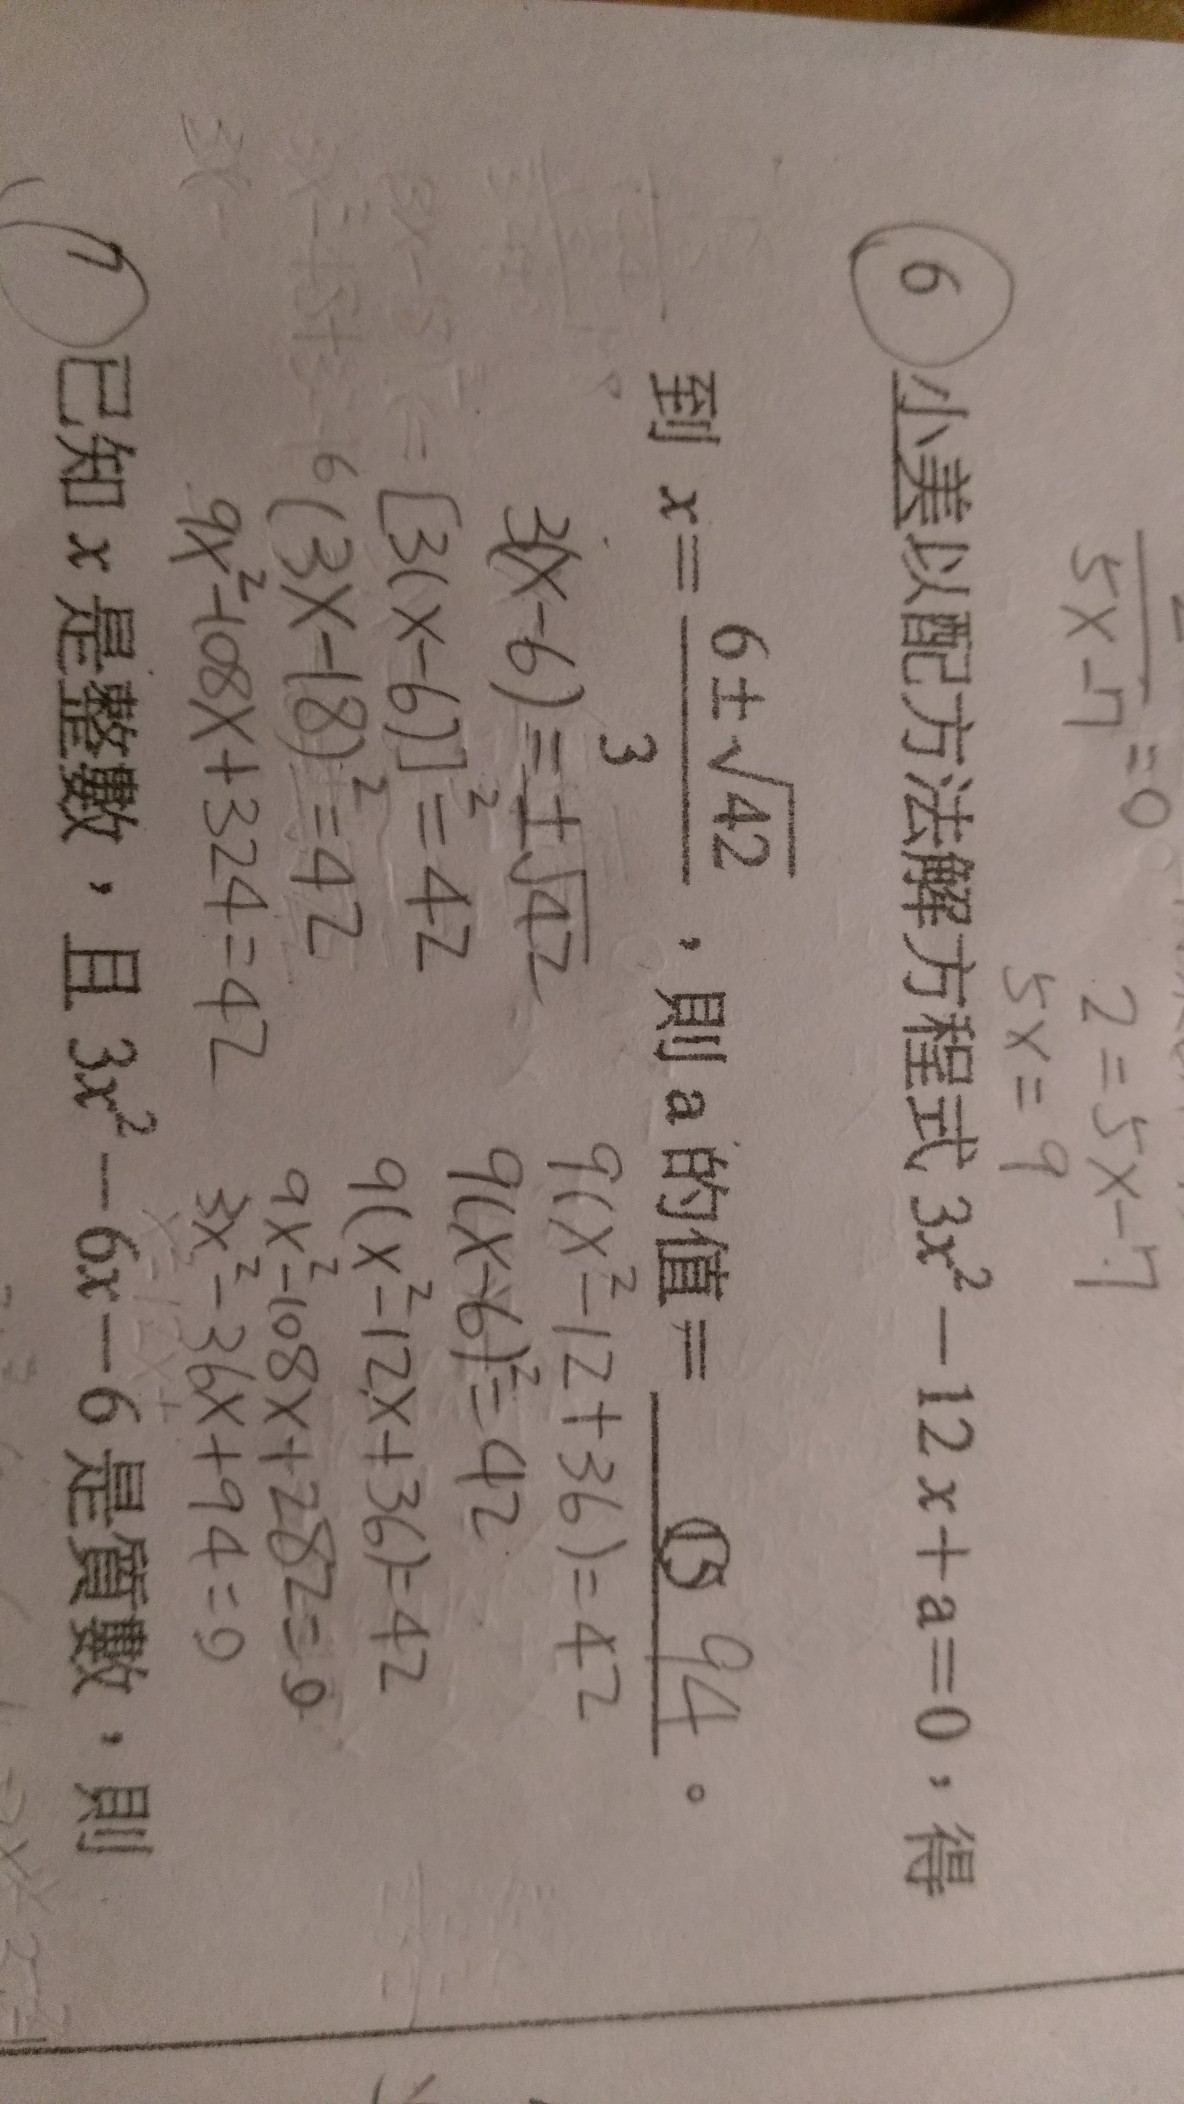 5x-7 =0
2=5x-7
5x=9
6 小美以配方法解方程式 3x²-12x+a=0,得
到 x= 6±√42 / 3 ,則 a 的值= 15 94 。
3(x-6)=±√42
[3(x-6)]²=42
(3x-18)²=42
9x²-108x+324=42
9(x²-12+36)=42
9(x-6)²=42
9(x²-12x+36)=42
9x²-108x+282=0
3x²-36x+94=0
7 已知 x 是整數,且 3x²-6x-6 是質數,則